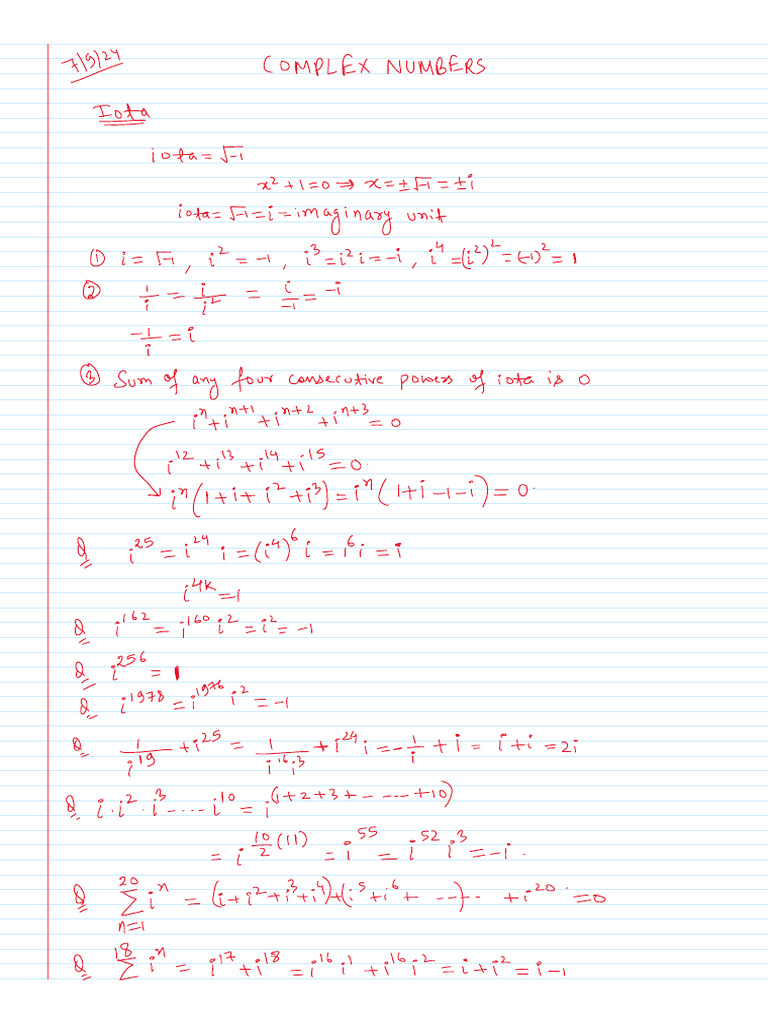 7/9/24
COMPLEX NUMBERS
Iota
iota = √-1
x² + 1 = 0 ⇒ x = ± √-1 = ± i
iota = √-1 = i = imaginary unit
① i = √-1 , i² = -1 , i³ = i² i = -i , i⁴ = (i²)² = (-1)² = 1
② 1/i = i/i² = i/-1 = -i
-1/i = i
③ Sum of any four consecutive powers of iota is 0
iⁿ + iⁿ⁺¹ + iⁿ⁺² + iⁿ⁺³ = 0
i¹² + i¹³ + i¹⁴ + i¹⁵ = 0.
iⁿ (1 + i + i² + i³) = iⁿ (1 + i - 1 - i) = 0.
Q i²⁵ = i²⁴ i = (i⁴)⁶ i = 1⁶ i = i
i^4K = 1
Q i¹⁶² = i¹⁶⁰ i² = i² = -1
Q i²⁵⁶ = 1
Q i¹⁹⁷⁸ = i¹⁹⁷⁶ i² = -1
Q 1/i¹⁹ + i²⁵ = 1/i¹⁶i³ + i²⁴ i = -1/i + i = i + i = 2i
Q i · i² · i³ ····· i¹⁰ = i^(1 + 2 + 3 + - - - - - + 10)
= i^10/2 (11) = i⁵⁵ = i⁵² i³ = -i .
Q 20 ∑ n=1 iⁿ = (i + i² + i³ + i⁴) + (i⁵ + i⁶ + - - -) - - - + i²⁰ = 0
Q 18 ∑ iⁿ = i¹⁷ + i¹⁸ = i¹⁶ i¹ + i¹⁶ i² = i + i² = i - 1